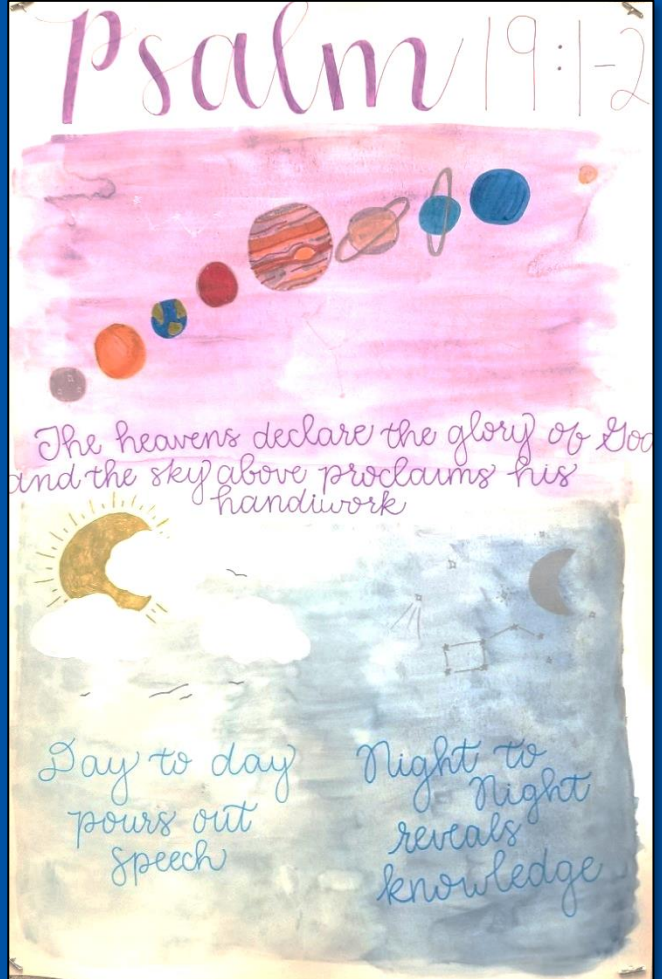 Psalm 19:1-2
The heavens declare the glory of God
and the sky above proclaims his
handiwork
Day to day
pours out
speech
Night to
Night
reveals
knowledge